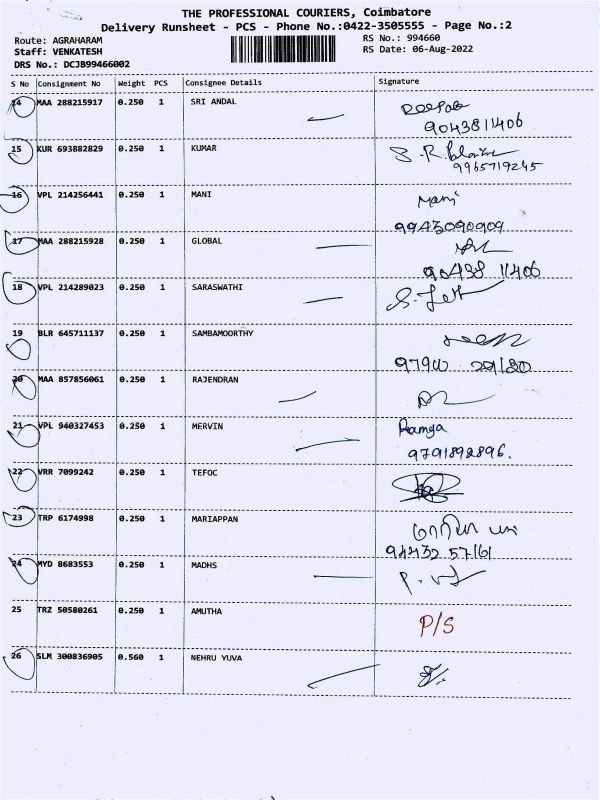 THE PROFESSIONAL COURIERS, Coimbatore
Delivery Runsheet - PCS - Phone No.:0422-3505555 - Page No.:2
Route: AGRAHARAM RS No.: 994660
Staff: VENKATESH RS Date: 06-Aug-2022
DRS No.: DCJB99466002
S No Consignment No Weight PCS Consignee Details Signature
14 MAA 288215917 0.250 1 SRI ANDAL Deepak
9043811406
15 KUR 693882829 0.250 1 KUMAR
9965719245
16 VPL 214256441 0.250 1 MANI Mani
9943090909
17 MAA 288215928 0.250 1 GLOBAL
90438 11406
18 VPL 214289023 0.250 1 SARASWATHI
19 BLR 645711137 0.250 1 SAMBAMOORTHY
20 MAA 857856061 0.250 1 RAJENDRAN
21 VPL 940327453 0.250 1 MERVIN Ramya
9791892896.
22 VRR 7099242 0.250 1 TEFOC
23 TRP 6174998 0.250 1 MARIAPPAN
94432 57161
24 MYD 8683553 0.250 1 MADHS
25 TRZ 50580261 0.250 1 AMUTHA P/S
26 SLM 300836905 0.560 1 NEHRU YUVA